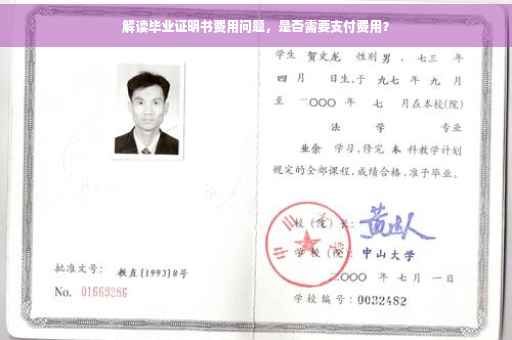 解读毕业证明书费用问题，是否需要支付费用？
学生 贺文龙 性别 男 、七三 年
四 月 日生,于 九七 年 九 月
至 二〇〇〇 年 七 月在本校(院)
法 学 专业
业余 学习,修完 本 科教学计划
规定的全部课程,成绩合格,准予毕业。
校 (院) 长:
学 校 (院): 中山大学
二〇〇〇 年 七 月 一 日
批准文号: 教直(1993)8号
No. 01669286
学校编号: 0032482